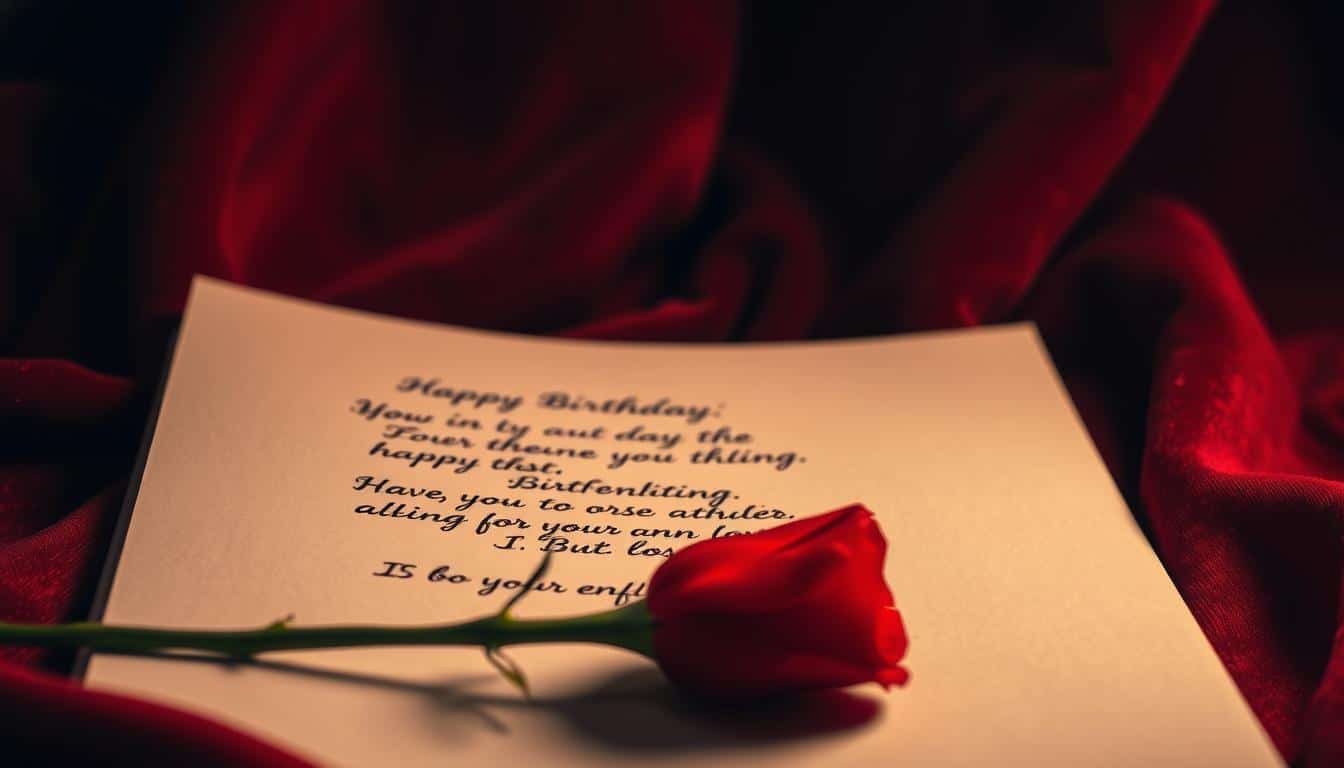 Happy Birthday:
Yow in ty aut day the
Fouer theune you thlling.
happy thst.
Birtfenliting.
Have, you to orse athiler.
alking for your ann
I. But los
IS bo your enfl